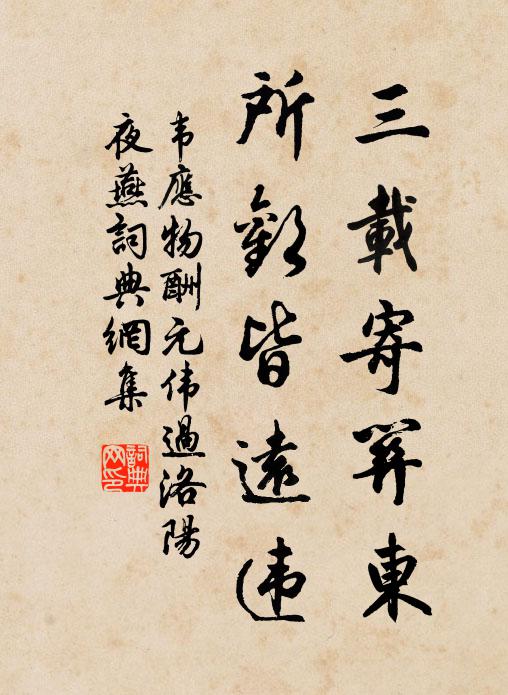 三載寄關東
所歡皆遠违
韦應物酬元伟過洛陽
夜燕詞典網集
詞典网印